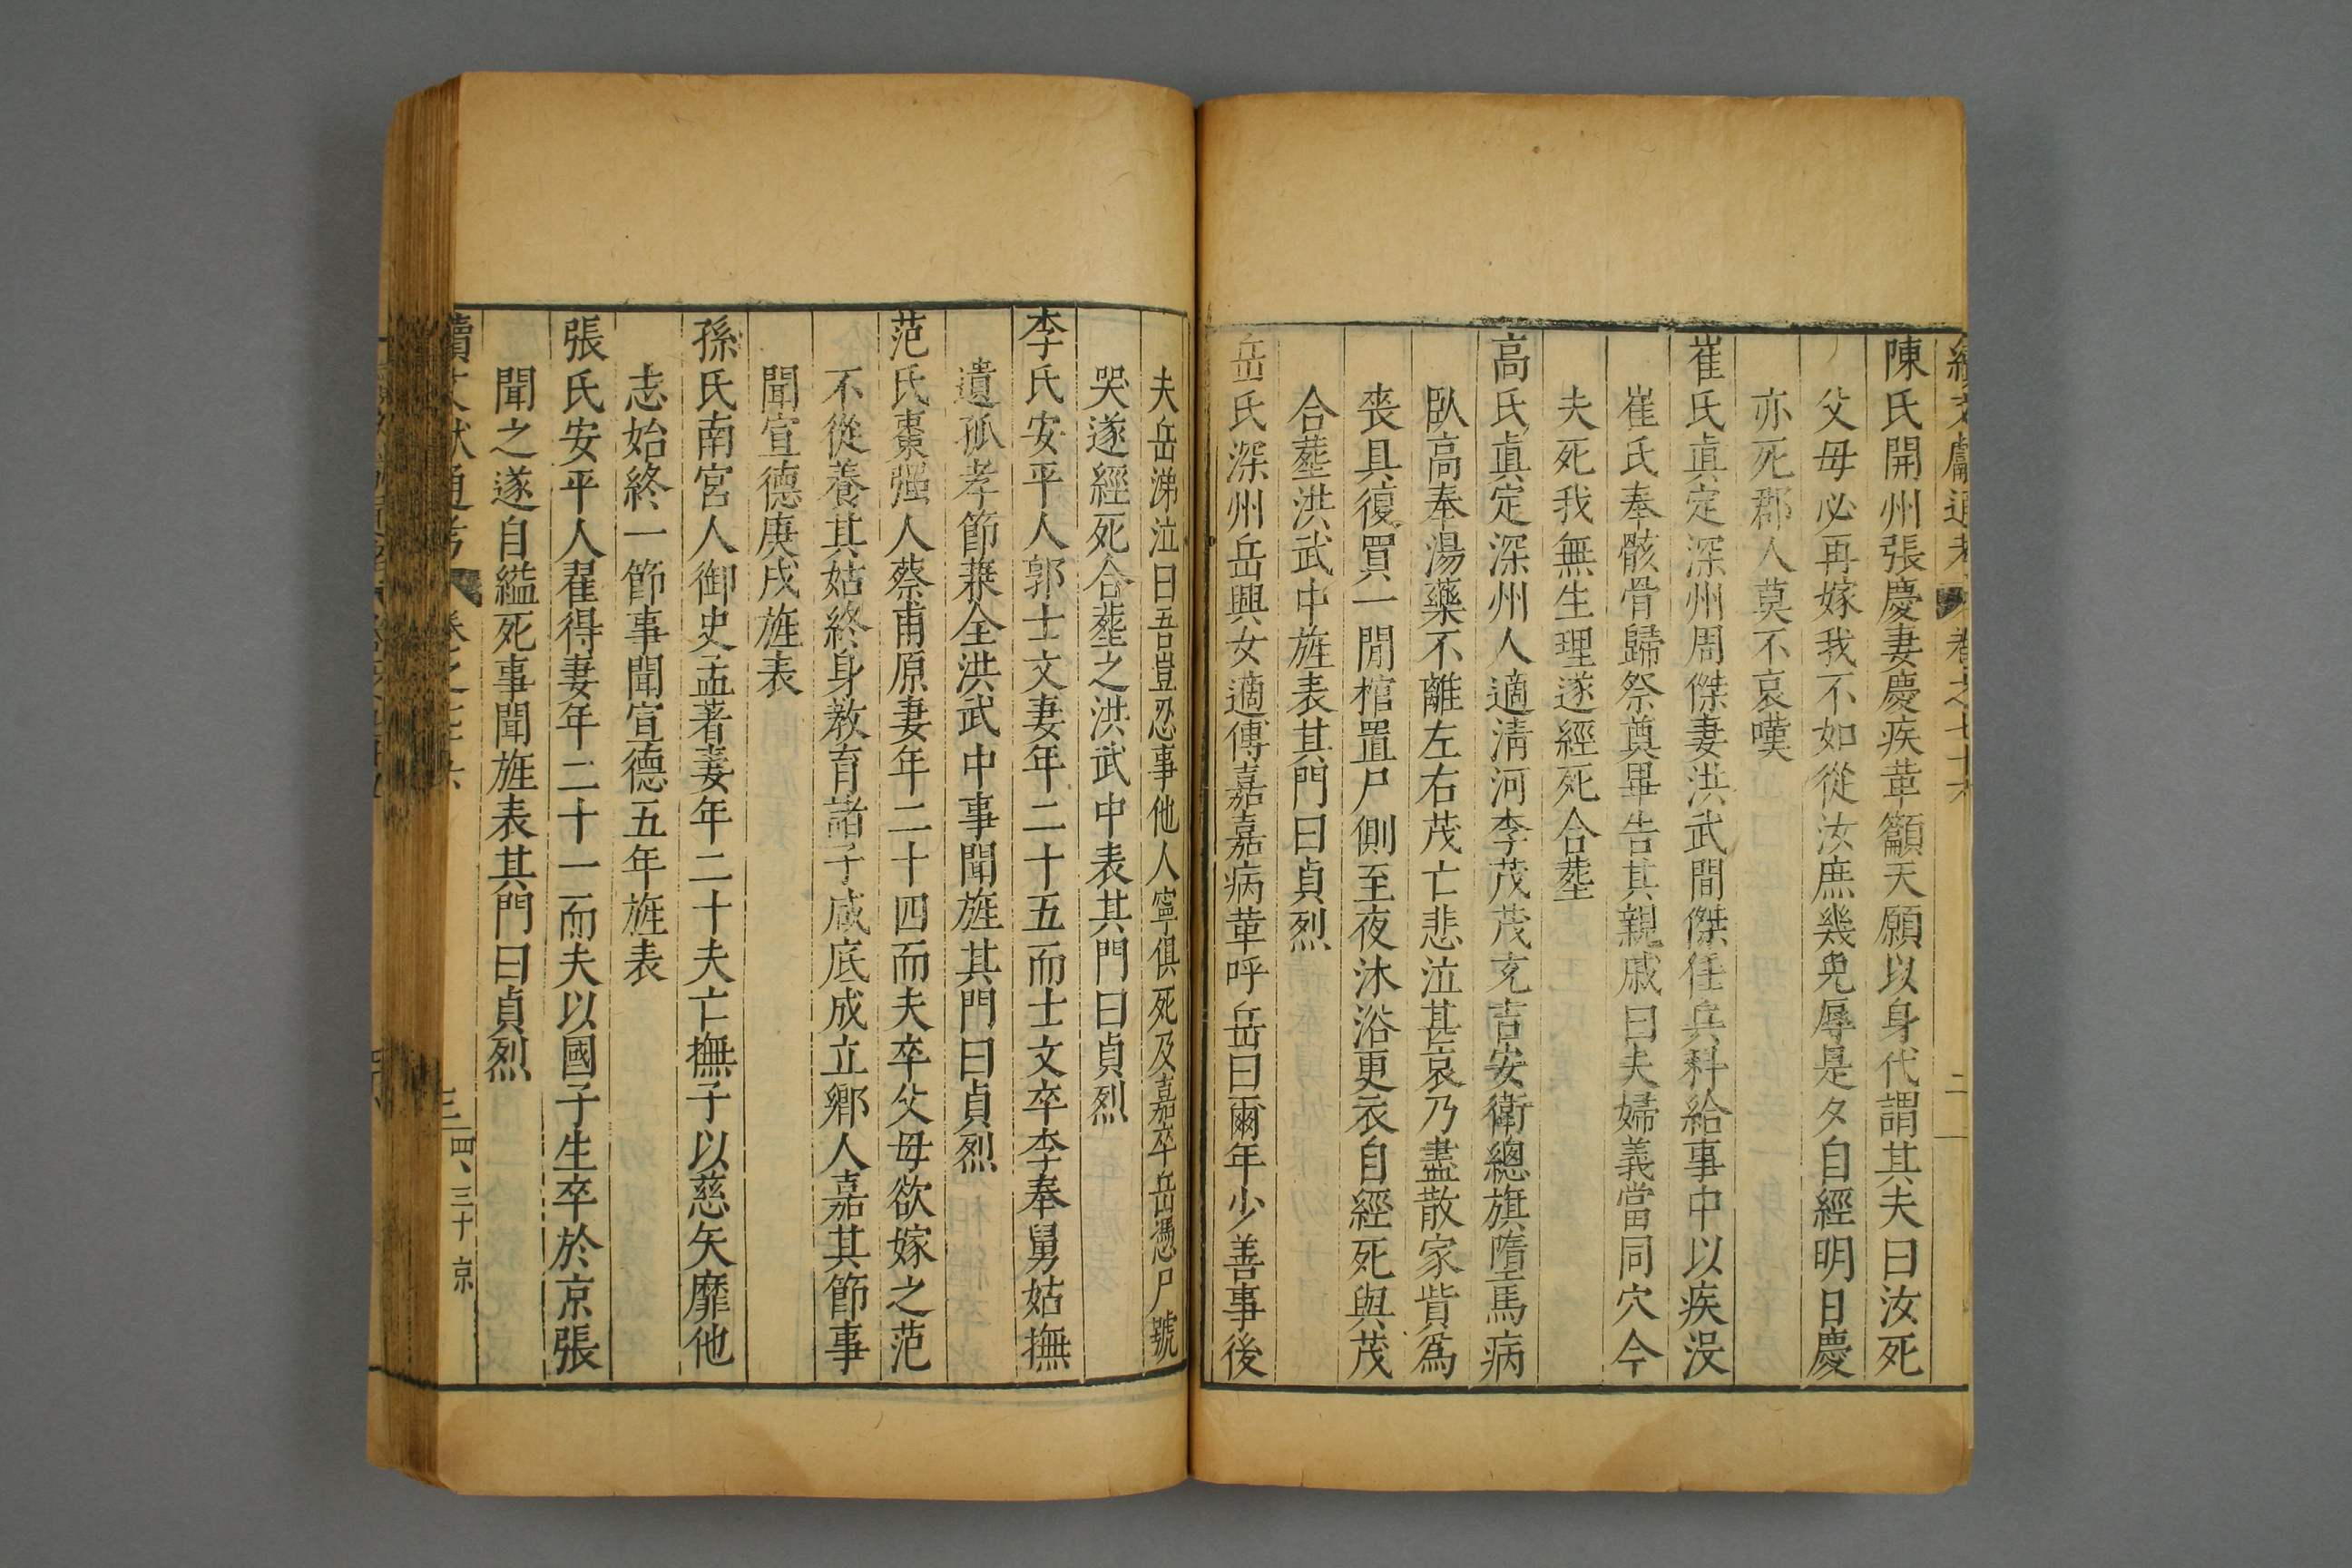 續文獻通考 卷之七十六 二
陳氏開州張慶妻慶疾革籲天願以身代謂其夫曰汝死
父母必再嫁我不如從汝庶幾免辱是夕自經明日慶
亦死郡人莫不哀嘆
崔氏真定深州周傑妻洪武間傑任兵科給事中以疾沒
崔氏奉骸骨歸祭奠畢告其親戚曰夫婦義當同穴今
夫死我無生理遂經死合塟
高氏真定深州人適清河李茂茂充吉安衛總旗墮馬病
臥高奉湯藥不離左右茂亡悲泣甚哀乃盡散家貲為
喪具復買一閒棺置尸側至夜沐浴更衣自經死與茂
合塟洪武中旌表其門曰貞烈
岳氏深州岳興女適傅嘉嘉病革呼岳曰爾年少善事後
夫岳涕泣曰吾豈忍事他人寧俱死及嘉卒岳憑尸號
哭遂經死合塟之洪武中表其門曰貞烈
李氏安平人郭士文妻年二十五而士文卒李奉舅姑撫
遺孤孝節兼全洪武中事聞旌其門曰貞烈
范氏棗强人蔡甫原妻年二十四而夫卒父母欲嫁之范
不從養其姑終身教育諸子咸底成立鄉人嘉其節事
聞宣德庚戌旌表
孫氏南宮人御史孟著妻年二十夫亡撫子以慈矢靡他
志始終一節事聞宣德五年旌表
張氏安平人翟得妻年二十一而夫以國子生卒於京張
聞之遂自縊死事聞旌表其門曰貞烈
續文獻通考 卷之七十六 三 四、三十 京